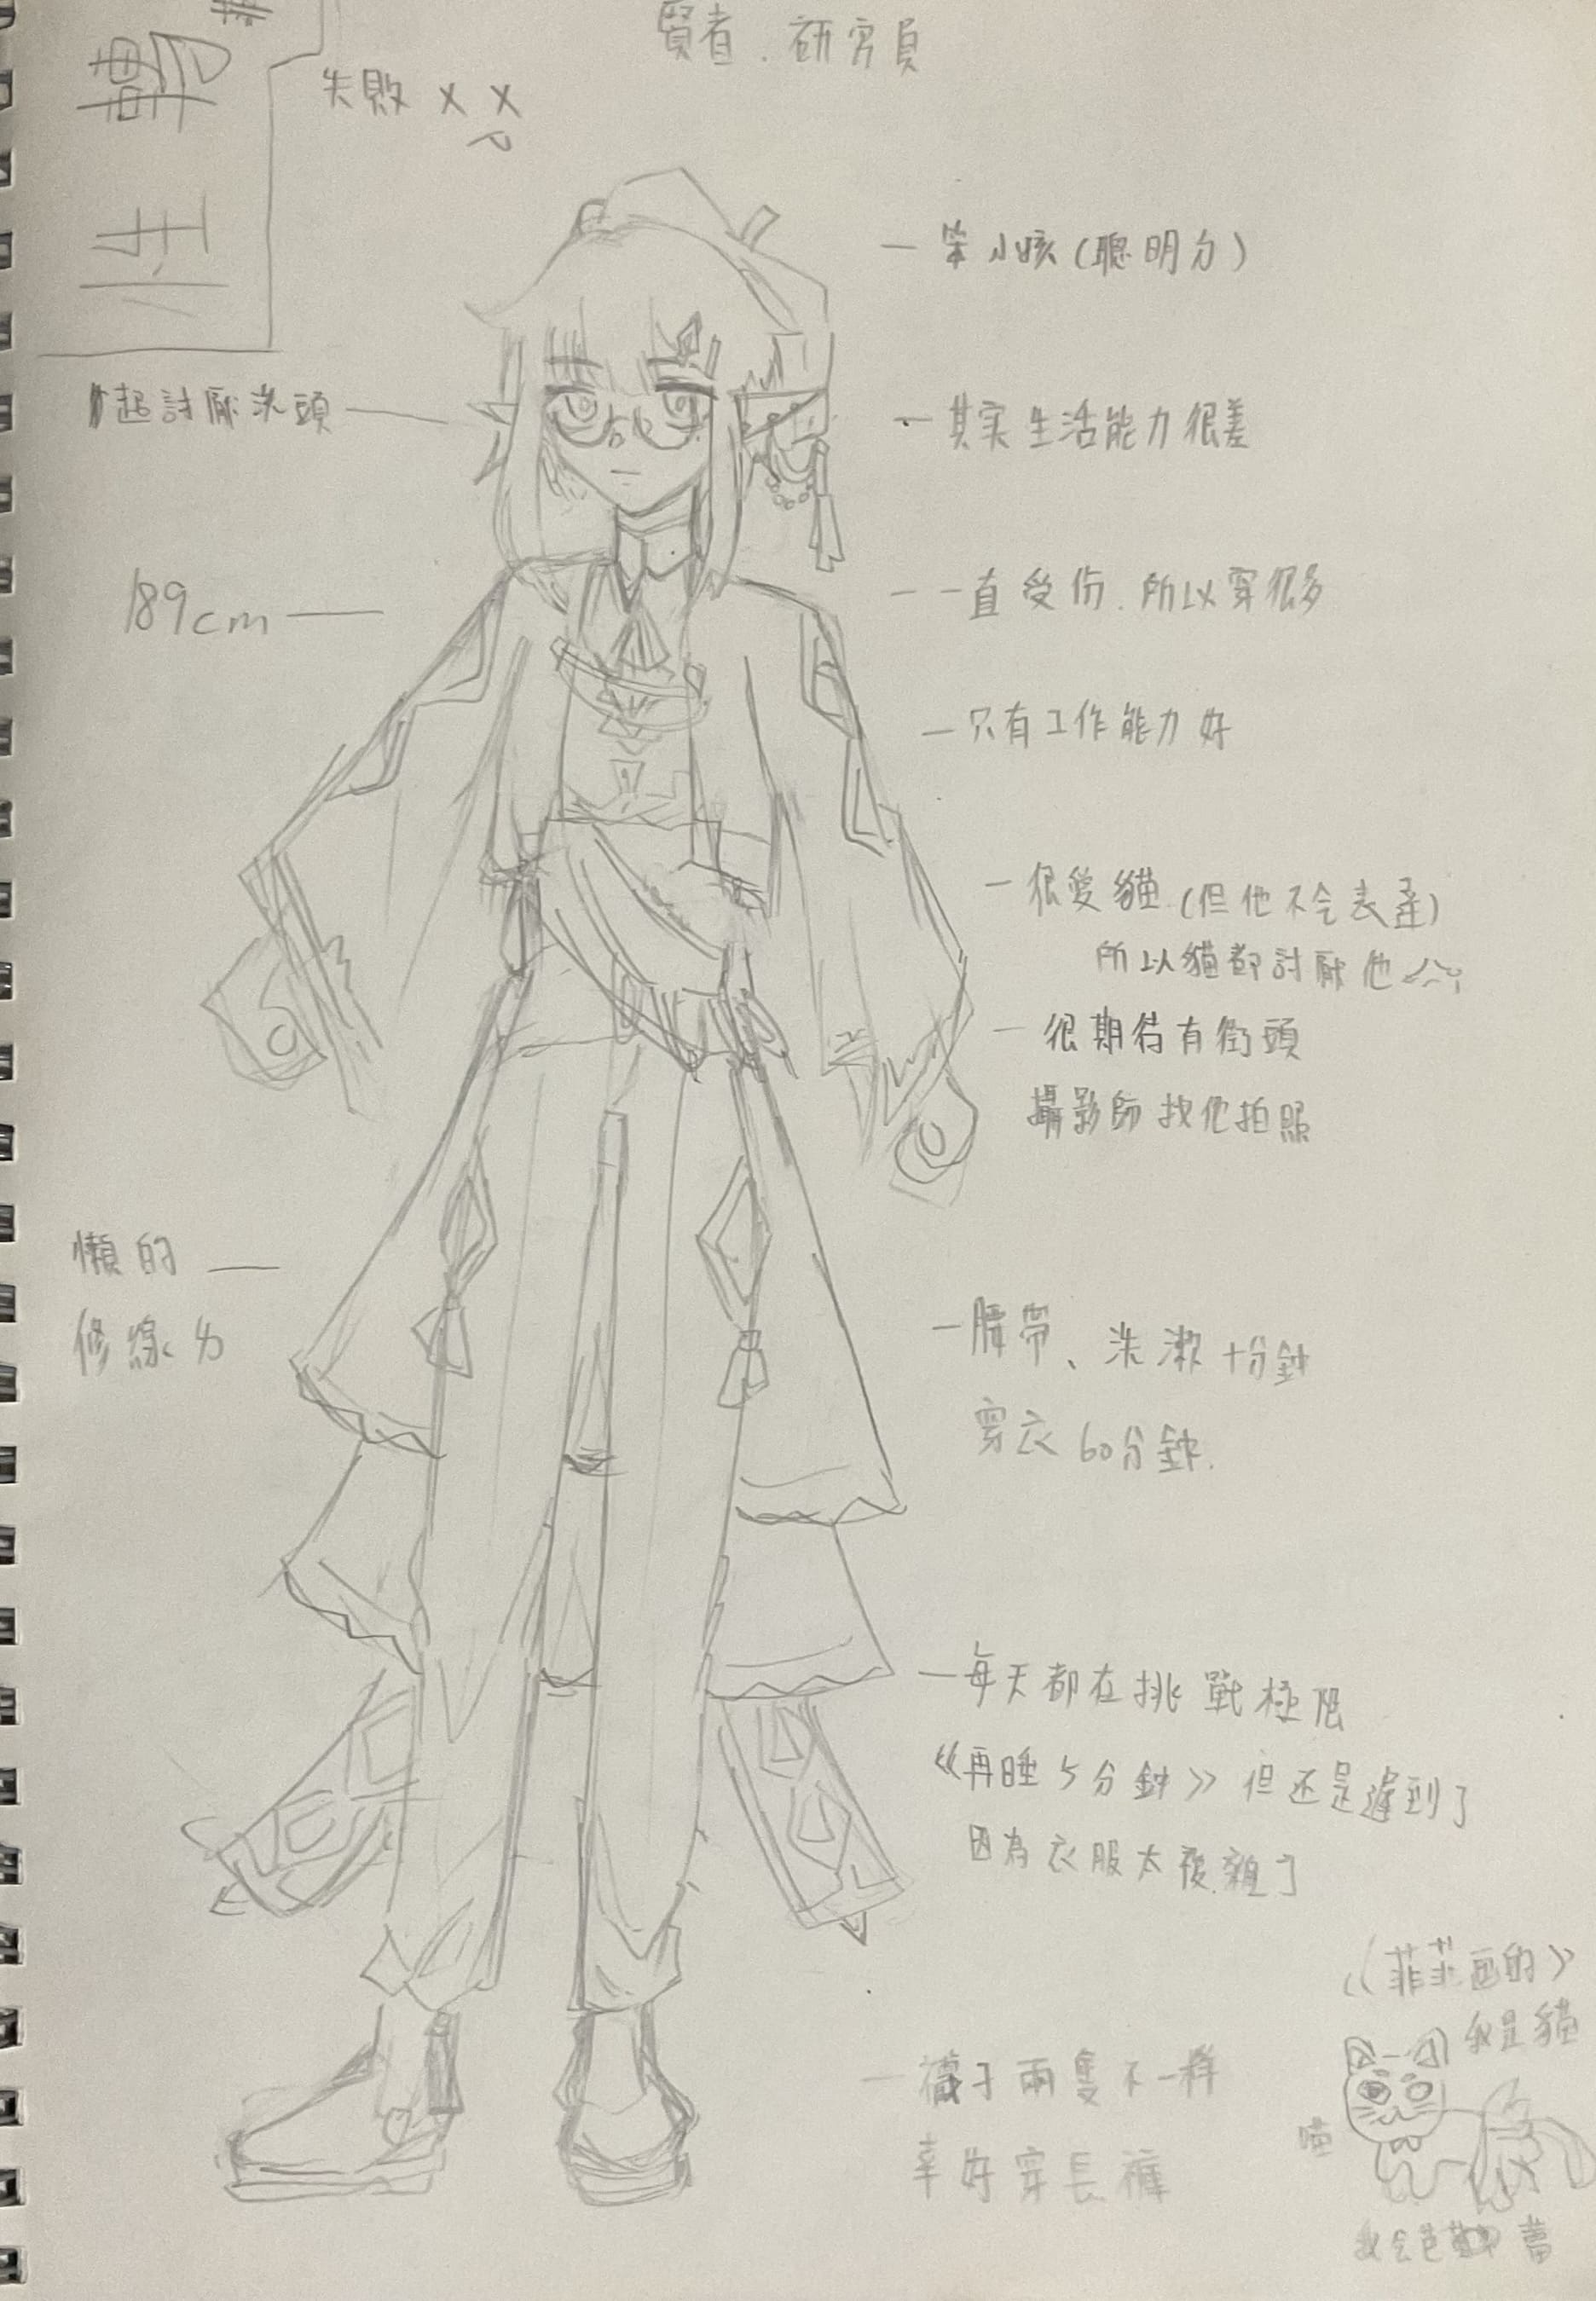 賢者．研究員
失敗 x x
笨小孩(聰明ㄉ)
起討厭洗頭
其实生活能力很差
189cm
一直受伤．所以穿很多
只有工作能力好
很愛貓(但他不会表達)
所以貓都討厭他
很期待有街頭
攝影師找他拍照
懶的
修線ㄌ
腰帶、洗漱十分鐘
穿衣60分鐘．
每天都在挑戰極限
《再睡5分鐘》但还是遲到了
因為衣服太複雜了
《菲菲画的》
我是貓
襪子兩隻不一样
幸好穿長褲
喵
我会芭蕾